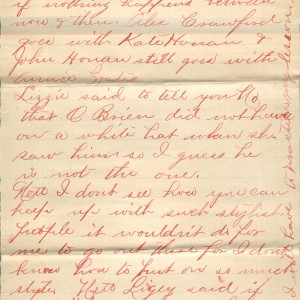 if nothing happens between
now & then. Alex Crawford
goes with Kate Honan &
John Honan still goes with
Lizzie said to tell you
that O Brien did not have
on a white hat when she
saw him so I guess he
is not the one.
Nett I dont see how you can
keep up with such stylish
people it wouldn't do for
me to go out there for I dont
know how to put on so much
style. Nett Lizey said if
I dont have a music lesson